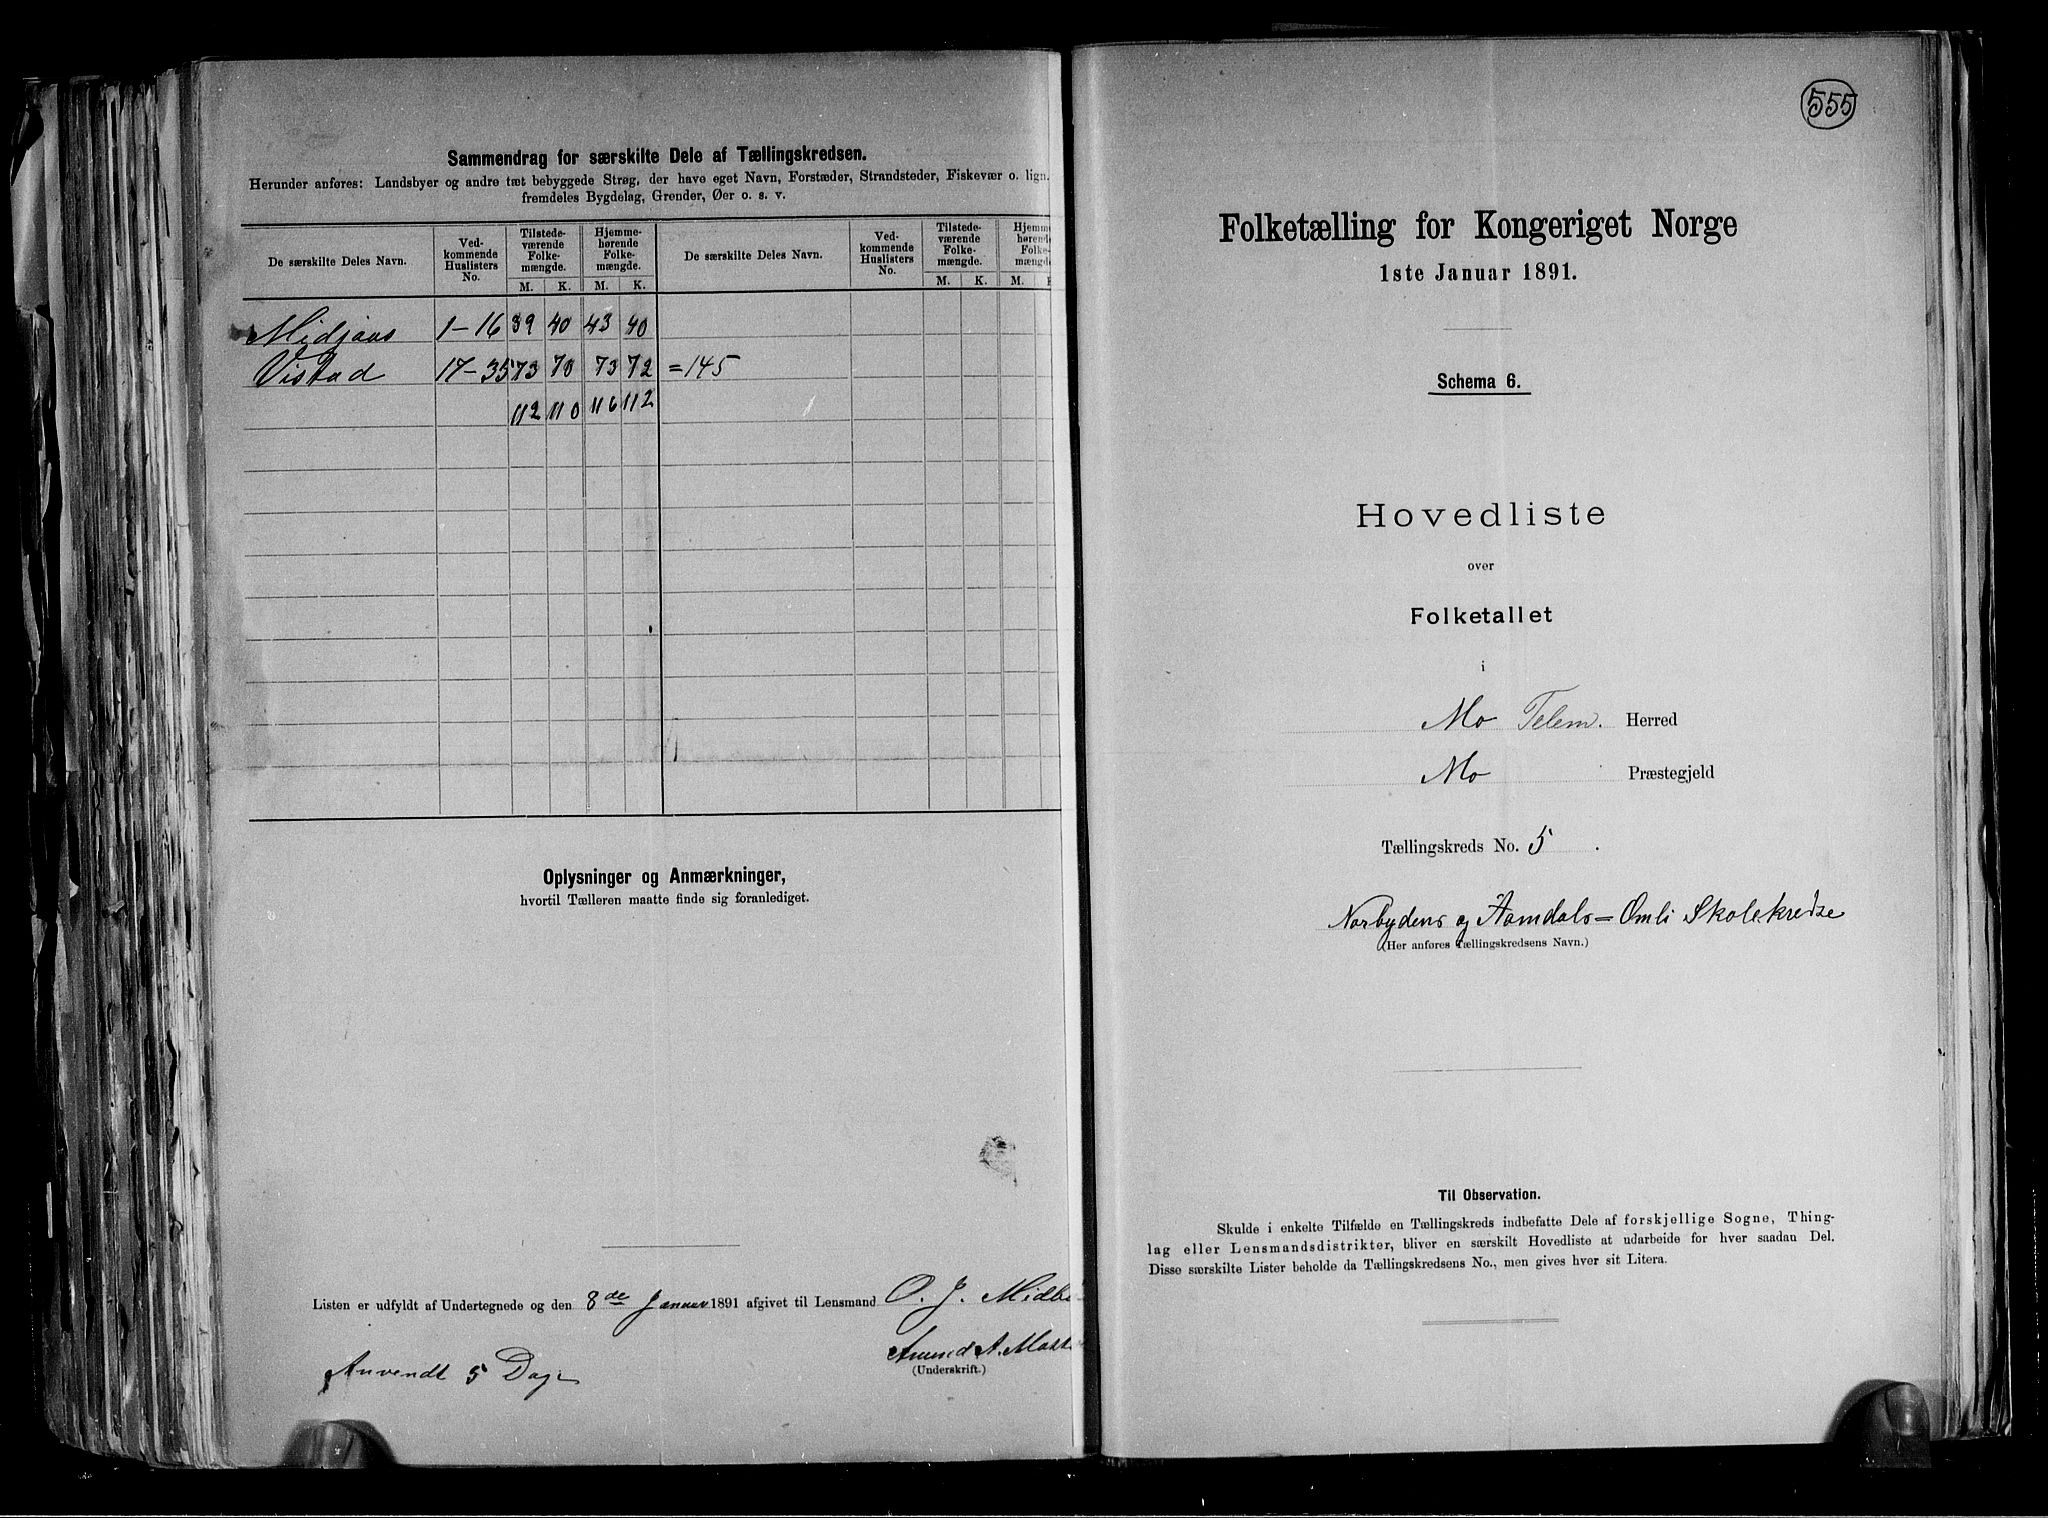 Sammendrag for særskilte Dele af Tællingskredsen.
Herunder anføres: Landsbyer og andre tæt bebyggede Strøg, der have eget Navn, Forstæder, Strandsteder, Fiskevær o. lign.
fremdeles Bygdelag, Grender, Øer o. s. v.
De særskilte Deles Navn. Ved-kommende Huslisters No. Tilstede-værende Folke-mængde. Hjemme-hørende Folke-mængde. De særskilte Deles Navn. Ved-kommende Huslisters No. Tilstede-værende Folke-mængde. Hjemme-hørende Folke-mængde.
M. K. M. K. M. K. M. K
1-16 39 40 43 40
Vistad 17-35 73 70 73 72 =145
112 110 116 112
Oplysninger og Anmærkninger,
hvortil Tælleren maatte finde sig foranlediget.
Listen er udfyldt af Undertegnede og den 8de Januar 1891 afgivet til Lensmand O. J.
Anvendt 5 Dage
A.
(Underskrift.)
555
Folketælling for Kongeriget Norge
1ste Januar 1891.
Schema 6.
Hovedliste
over
Folketallet
i
Mo Telem. Herred
Mo Præstegjeld
Tællingskreds No. 5.
Norbydens og Aamdals=Omli Skolekredse
(Her anføres Tællingskredsens Navn.)
Til Observation.
Skulde i enkelte Tilfælde en Tællingskreds indbefatte Dele af forskjellige Sogne, Thing-
lag eller Lensmandsdistrikter, bliver en særskilt Hovedliste at udarbeide for hver saadan Del.
Disse særskilte Lister beholde da Tællingskredsens No., men gives hver sit Litera.